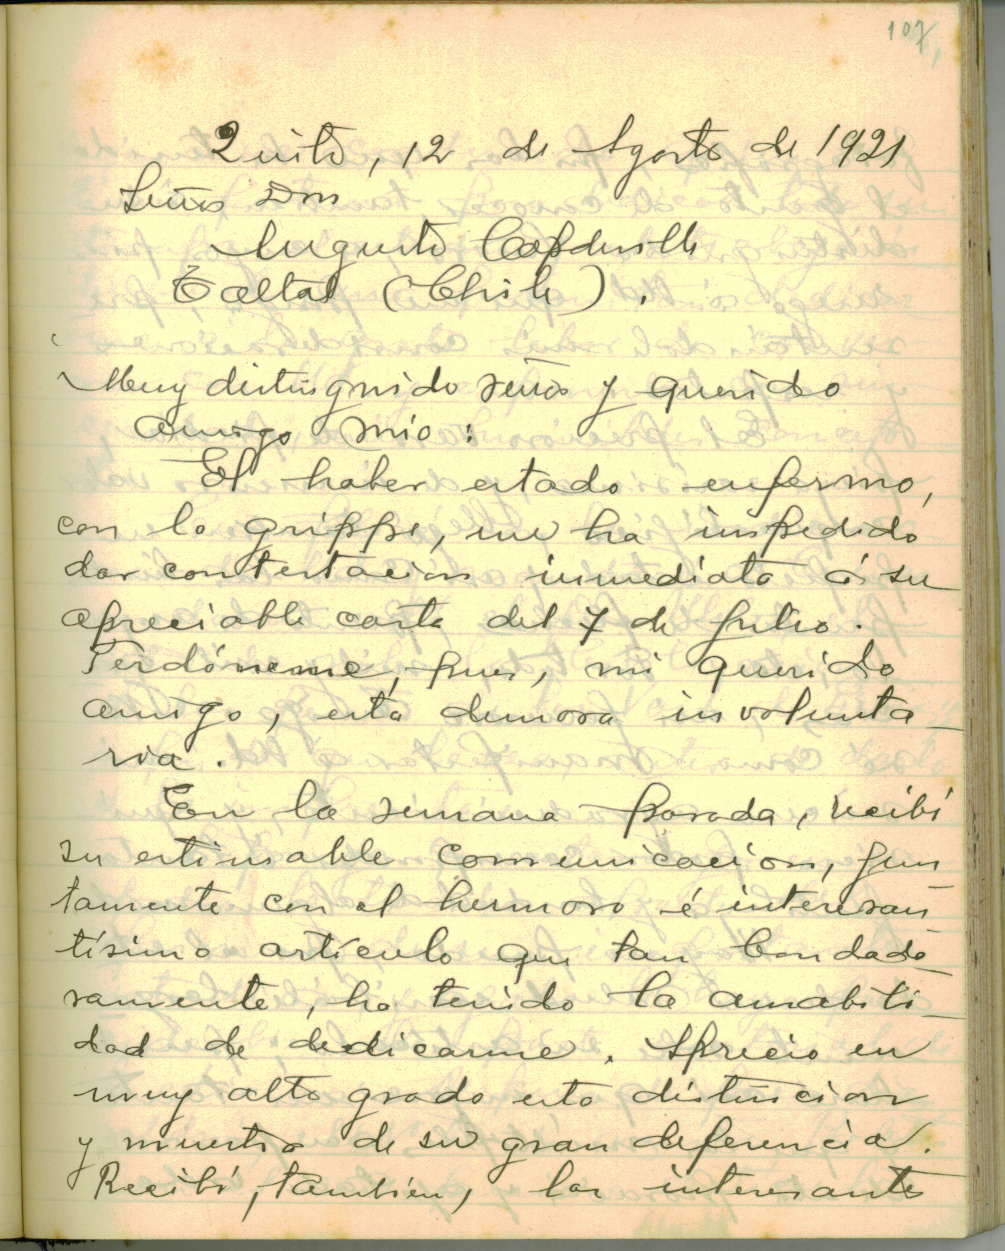 107,
Quito, 12 de Agosto de 1921
Señor Don
Augusto Capdeville
Taltal (Chile).
Muy distinguido señor y querido
amigo mio:
El haber estado enfermo,
con la grippe, me ha impedido
dar contestacion inmediata á su
apreciable carta del 7 de Julio.
Perdóneme, pues, mi querido
amigo, esta demora involunta-
ria.
En la semana pasada, recibí
su estimable comunicacion, jun-
tamente con el hermoso é interesan-
tísimo artículo que tan bondado-
samente, ha tenido la amabili-
dad de dedicarme. Aprecio en
muy alto grado esta distincion
y muestra de su gran deferencia.
Recibí, tambien, las interesantes